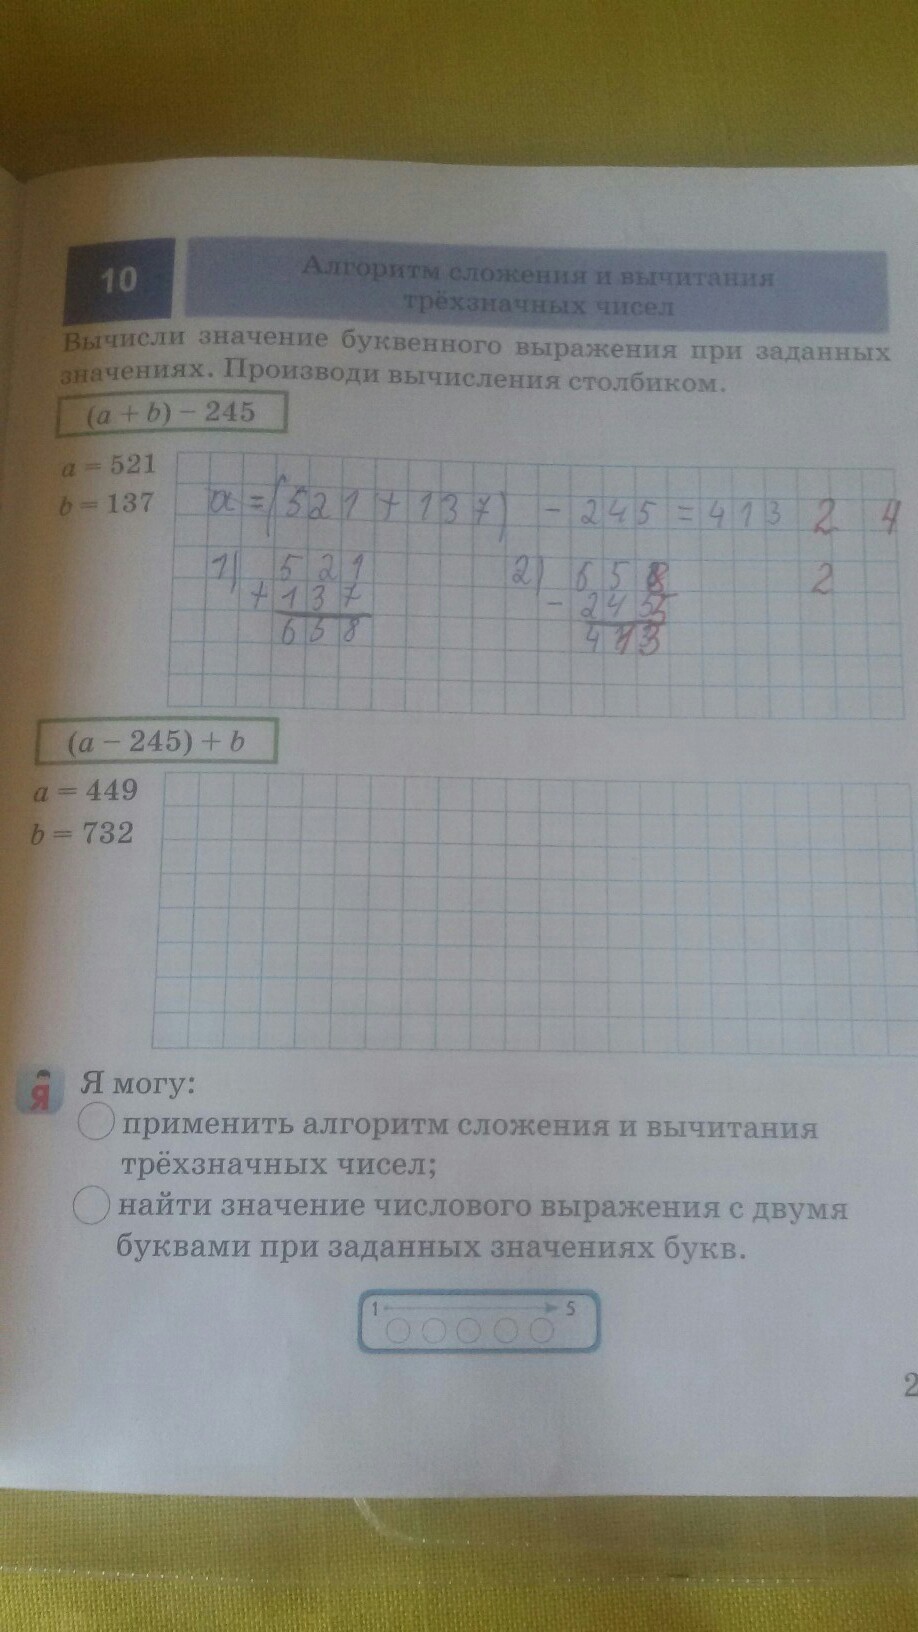 10
Алгоритм сложения и вычитания
трёхзначных чисел
Вычисли значение буквенного выражения при заданных
значениях. Производи вычисления столбиком.
(a + b) − 245
a = 521
b = 137
a = (521 + 137) − 245 = 413 2 4
1) 521
+ 137
658
2) 658
− 245
413
2
(a − 245) + b
a = 449
b = 732
Я
Я могу:
применить алгоритм сложения и вычитания
трёхзначных чисел;
найти значение числового выражения с двумя
буквами при заданных значениях букв.
1 5
2